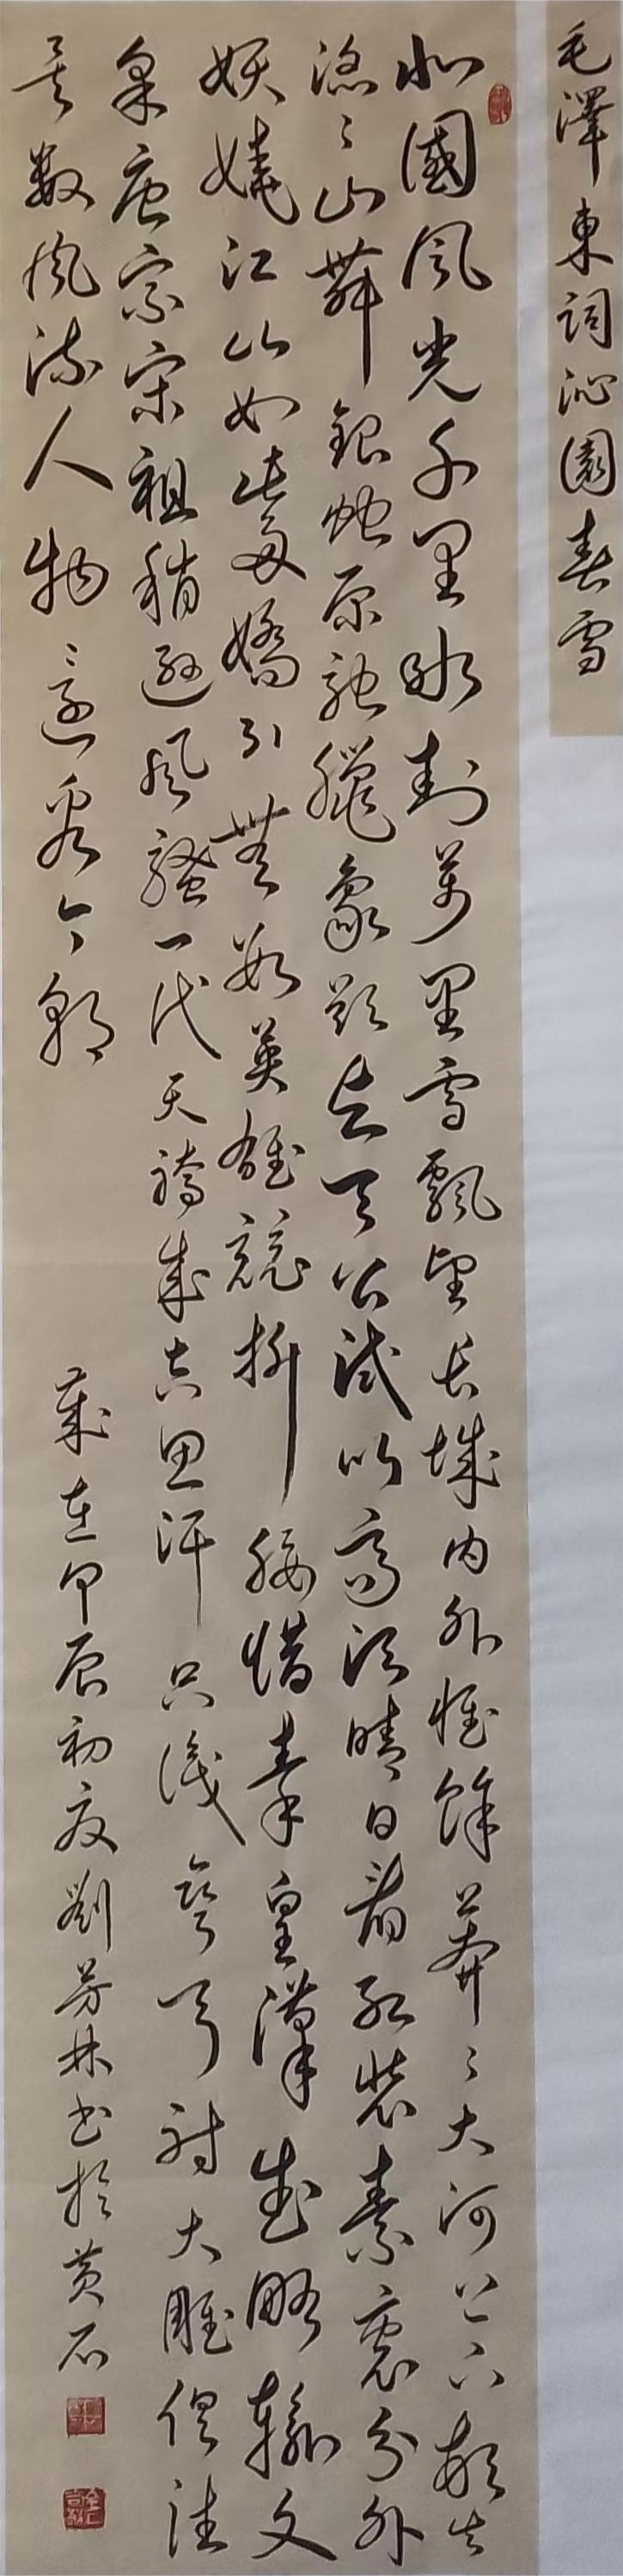 毛澤東詞沁園春雪
北國風光千里冰封萬里雪飄望長城內外惟餘莽々大河上下頓失
滔々山舞銀蛇原馳臘象欲與天公試比高須晴日看紅裝素裹分外
妖嬈江山如此多嬌引無數英雄競折腰惜秦皇漢武略輸文
采唐宗宋祖稍遜風騷一代天驕成吉思汗只識彎弓射大雕俱往
矣數風流人物還看今朝
歲在甲辰初夏劉芳林書於黃石